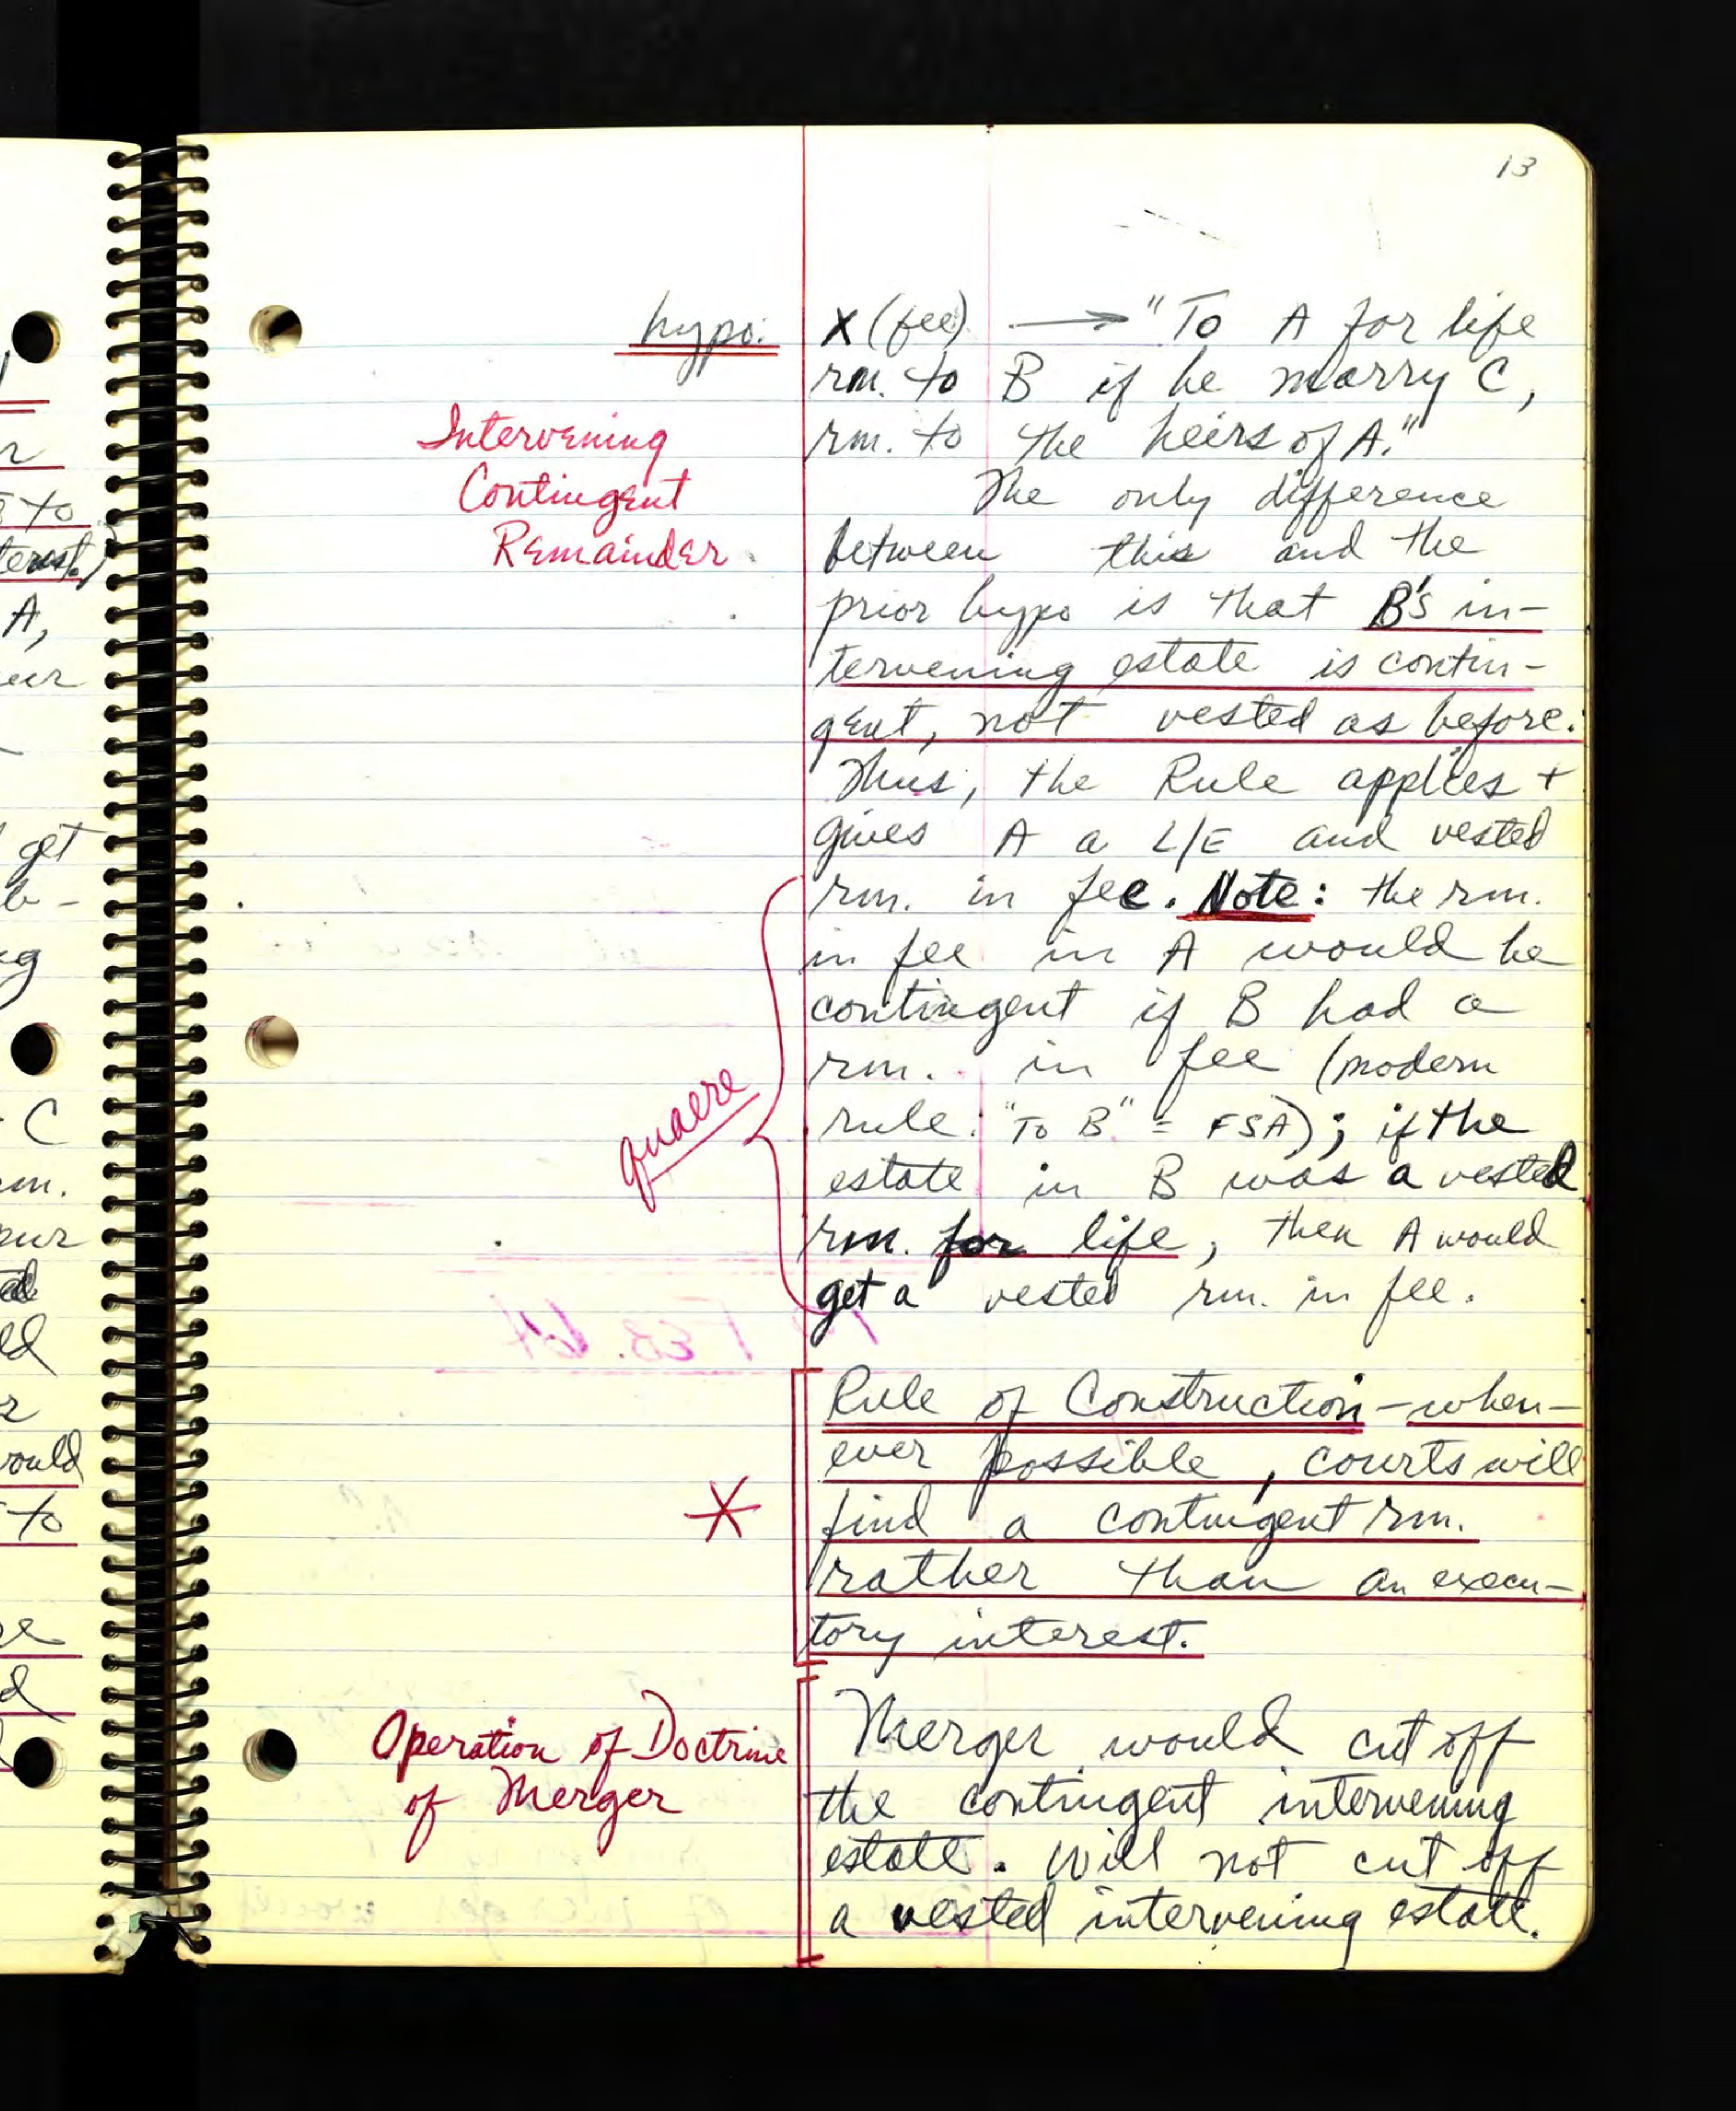 13
hypo: X (fee) → "To A for life
rm. to B if he marry C,
Intervening rm. to the heirs of A."
Contingent The only difference
Remainder. between this and the
prior hypo is that B's in-
tervening estate is contin-
gent, not vested as before.
Thus, the Rule applies +
gives A a L/E and vested
rm. in fee. Note: the rm.
in fee in A would be
contingent if B had a
rm. in fee (modern
quaere rule: "To B" = FSA); if the
estate in B was a vested
rm. for life, then A would
get a vested rm. in fee.
Rule of Construction - when-
ever possible, courts will
* find a contingent rm.
rather than an execu-
tory interest.
Operation of Doctrine Merger would cut off
of Merger the contingent intervening
estate. Will not cut off
a vested intervening estate.